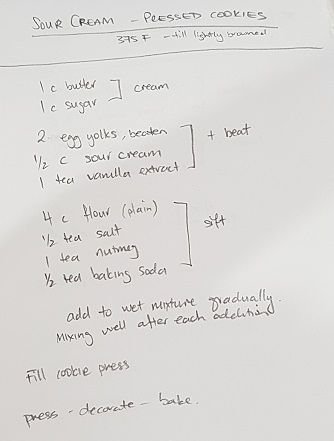 SOUR CREAM - PRESSED COOKIES
375 F - till lightly browned
1 c butter
1 c sugar
cream
2 egg yolks, beaten
1/2 c sour cream
1 tea vanilla extract
+ beat
4 c flour (plain)
1/2 tea salt
1 tea nutmeg
1/2 tea baking soda
sift
add to wet mixture gradually.
Mixing well after each addition
Fill cookie press
press - decorate - bake.